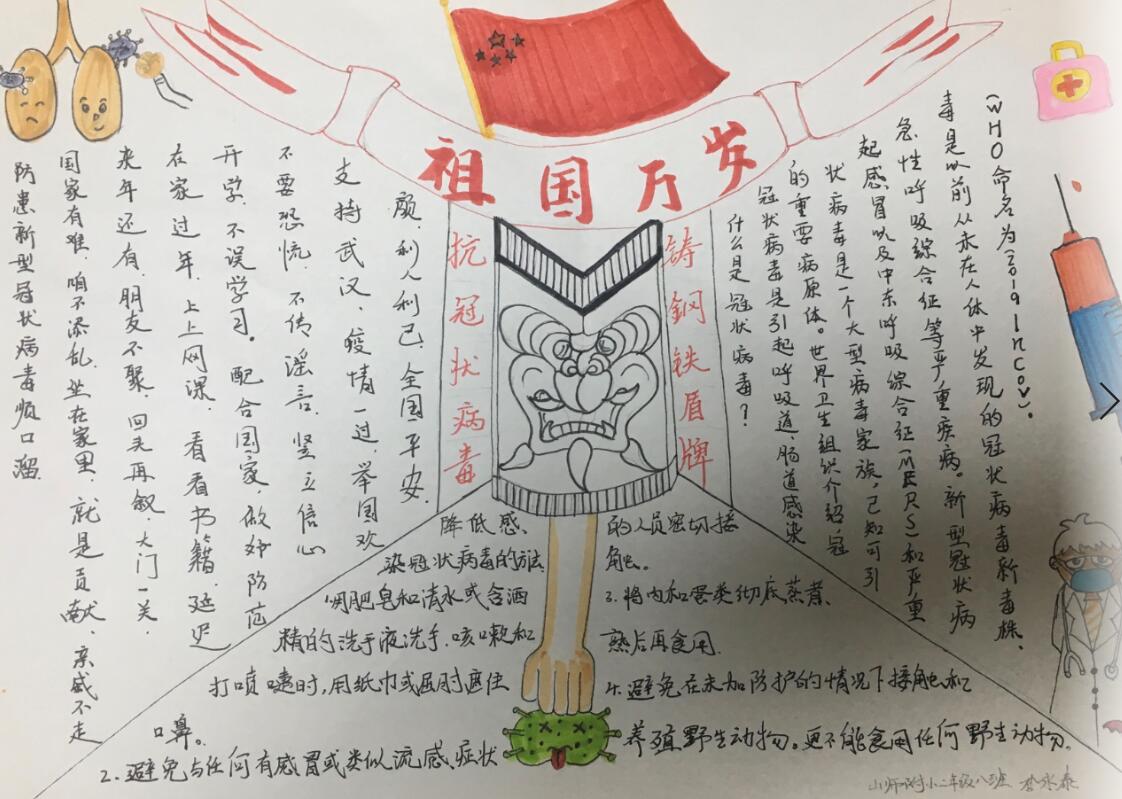 祖国万岁
抗冠状病毒
铸钢铁盾牌
什么是冠状病毒？
冠状病毒是引起呼吸道、肠道感染
的重要病原体。世界卫生组织介绍，冠
状病毒是一个大型病毒家族，已知可引
起感冒以及中东呼吸综合征（MERS）和严重
急性呼吸综合征等严重疾病。新型冠状病
毒是以前从未在人体中发现的冠状病毒新毒株、
（WHO命名为2019nCoV）。
防患新型冠状病毒顺口溜
国家有难，咱不添乱，坐在家里，就是贡献、亲戚不走
来年还有，朋友不聚，回头再叙，大门一关，
在家过年，上上网课，看看书籍，延迟
开学，不误学习。配合国家，做好防范
不要恐慌，不传谣言，坚立信心
支持武汉，疫情一过，举国欢
颜，利人利己，全国平安.
降低感
染冠状病毒的方法
1.用肥皂和清水或含酒
精的洗手液洗手.咳嗽和
打喷嚏时，用纸巾或屈肘遮住
口鼻。
2.避免与任何有感冒或类似流感症状
的人员密切接
触。
3.将肉和蛋类彻底蒸煮、
熟后再食用.
4.避免在未加防护的情况下接触和
养殖野生动物。更不能食用任何野生动物.
山师附小二年级八班 李永泰